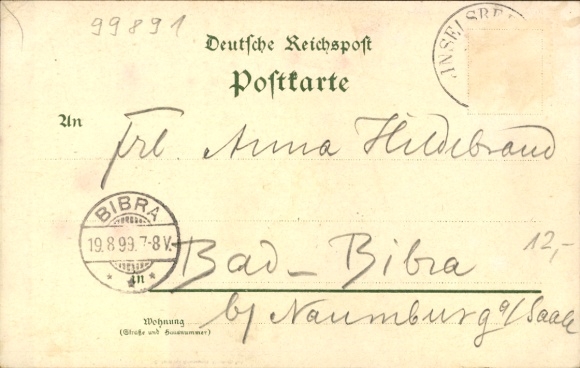 99891
Deutsche Reichspost
Postkarte
INSELSBE
An
Frl. Anna Hildebrand
BIBRA
19.8.99.7-8V.
* *
Bad-Bibra
12,-
b/ Naumburg a/Saale
Wohnung
(Straße und Hausnummer)